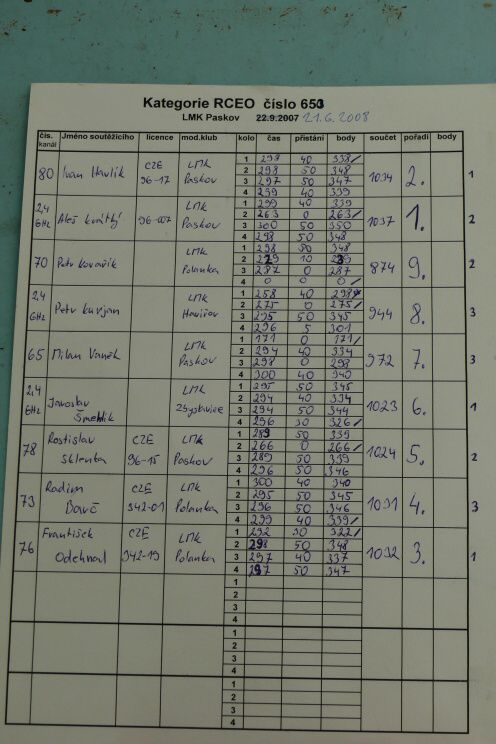 Kategorie RCEO číslo 653
LMK Paskov 22.9.2007 21.6.2008
čís. kanál Jméno soutěžícího licence mod.klub kolo čas přistání body součet pořadí body
80 Ivan Havlík CZE 96-17 LMK Paskov 1034 2. 1
1 298 40 338
2 298 50 348
3 297 50 347
4 299 40 339
2,4 GHz Aleš 96-007 LMK Paskov 1037 1. 2
1 299 40 339
2 263 0 263
3 300 50 350
4 298 50 348
70 Petr Kovařík LMK Polanka 874 9. 2
1 298 50 348
2 229 10 239
3 287 0 287
4 0 0 0
2,4 GHz Petr Kurjan LMK Havířov 944 8. 3
1 258 40 298
2 275 0 275
3 295 50 345
4 296 5 301
65 Milan Vaněk LMK Paskov 972 7. 3
1 171 0 171
2 294 40 334
3 298 0 298
4 300 40 340
2,4 GHz Jaroslav LMK 1023 6. 1
1 295 50 345
2 294 40 334
3 294 50 344
4 296 30 326
78 Rostislav Sklenka CZE 96-15 LMK Paskov 1024 5. 2
1 289 50 339
2 266 0 266
3 289 50 339
4 296 50 346
73 Radim CZE 342-01 LMK Polanka 1031 4. 3
1 300 40 340
2 295 50 345
3 296 50 346
4 299 40 339
76 František Odehnal CZE 342-19 LMK Polanka 1032 3. 1
1 292 30 322
2 298 50 348
3 297 40 337
4 297 50 347
1
2
3
4
1
2
3
4
1
2
3
4